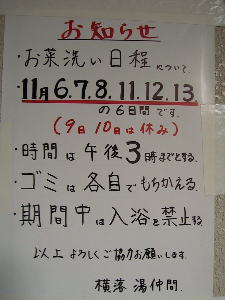 お知らせ
・お菜洗い日程について.
11月6.7.8.11.12.13
の6日間です.
(9日10日は休み)
・時間は午後3時までとする.
・ゴミは各自でもちかえる.
・期間中は入浴を禁止する.
以上よろしくご協力お願いします.
横落湯仲間.